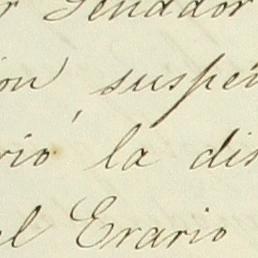 r Senador
ion suspen
rio la dis
el Erario